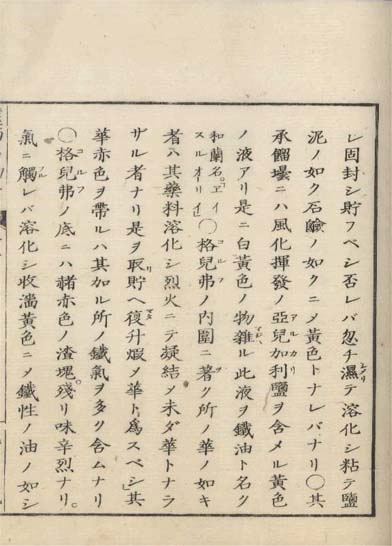 レ固封シ貯フベシ否レバ忽チ濕テ溶化シ粘テ鹽
泥ノ如ク石鹼ノ如クニメ黄色トナレバナリ〇其
承餾壜ニハ風化揮發ノ亞兒加利鹽ヲ含メル黄色
ノ液アリ是ニ白黄色ノ物雜ル此液ヲ鐵油ト名ク
和蘭名「エイスルオーリイ」〇格兒弗ノ内圍ニ著ク所ノ華ノ如キ
者ハ其藥料溶化シ烈火ニテ凝結メ未ダ華トナラ
ザル者ナリ是ヲ取貯ヘ復升煆メ華ト爲スベシ其
華赤色ヲ帶ルハ其加ル所ノ鐵氣ヲ多ク含ムナリ
〇格兒弗ノ底ニハ赭赤色ノ渣塊殘リ味辛烈ナリ。
氣ニ觸レバ溶化シ收濇黄色ニメ鐵性ノ油ノ如シ